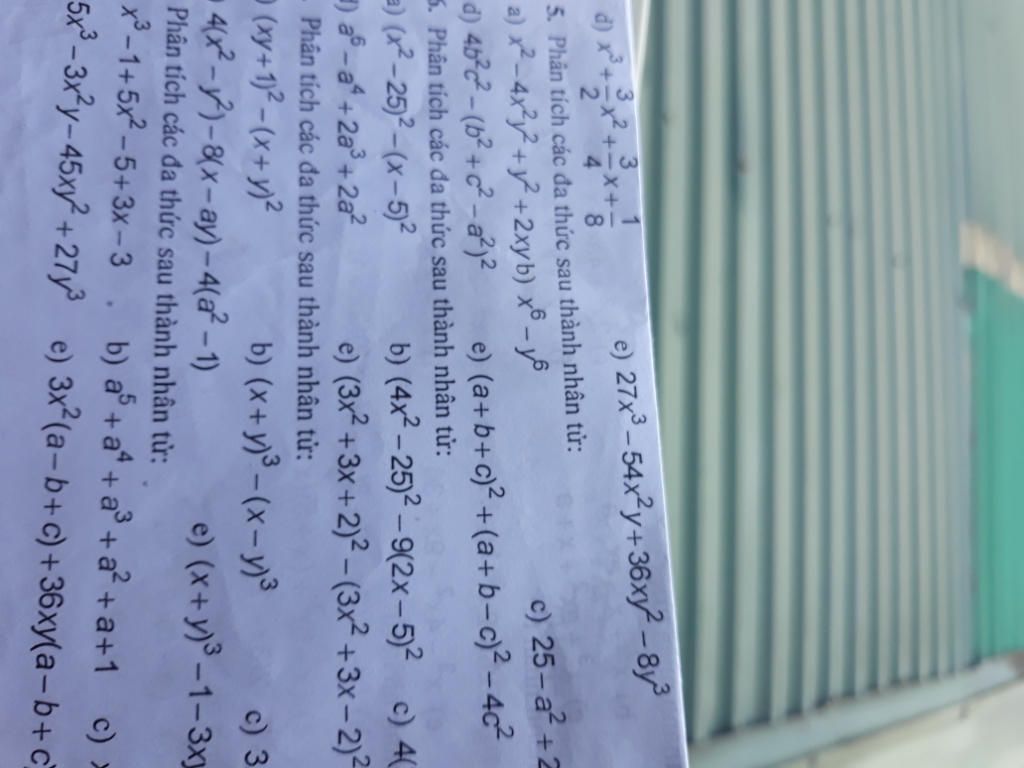 d) x³ + 3/2 x² + 3/4 x + 1/8 e) 27x³ − 54x²y + 36xy² − 8y³
5. Phân tích các đa thức sau thành nhân tử:
a) x² − 4x²y² + y² + 2xyb) x⁶ − y⁶ c) 25 − a² + 2
d) 4b²c² − (b² + c² − a²)² e) (a + b + c)² + (a + b − c)² − 4c²
6. Phân tích các đa thức sau thành nhân tử:
a) (x² − 25)² − (x − 5)² b) (4x² − 25)² − 9(2x − 5)² c) 4(
d) a⁶ − a⁴ + 2a³ + 2a² e) (3x² + 3x + 2)² − (3x² + 3x − 2)²
. Phân tích các đa thức sau thành nhân tử:
) (xy + 1)² − (x + y)² b) (x + y)³ − (x − y)³ c) 3
) 4(x² − y²) − 8(x − ay) − 4(a² − 1) e) (x + y)³ − 1 − 3xy
Phân tích các đa thức sau thành nhân tử:
x³ − 1 + 5x² − 5 + 3x − 3 b) a⁵ + a⁴ + a³ + a² + a + 1 c)
5x³ − 3x²y − 45xy² + 27y³ e) 3x²(a − b + c) + 36xy(a − b + c)